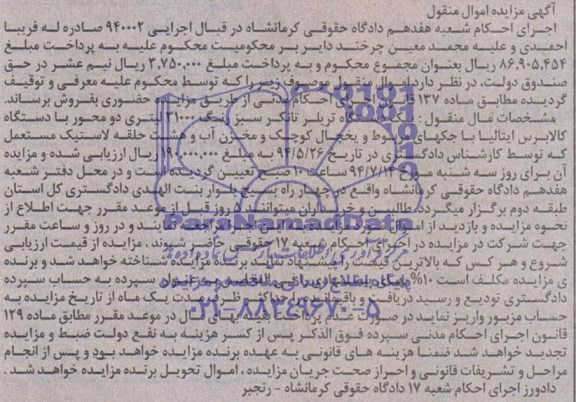 آگهی مزایده اموال منقول
اجرای احکام شعبه هفدهم دادگاه حقوقی کرمانشاه در قبال اجرایی ۹۴۰۰۰۲ صادره له فریبا
احمدی و علیه محمد معین چرخند دایر بر محکومیت محکوم علیه به پرداخت مبلغ
۸۶,۹۰۵,۴۵۴ ریال بعنوان مجموع محکوم و به پرداخت مبلغ ۳,۷۵۰,۰۰۰ ریال نیم عشر در حق
صندوق دولت، در نظر دارد اموال منقول موصوف زیر را که توسط محکوم علیه معرفی و توقیف
گردیده مطابق ماده ۱۳۷ قانون اجرای احکام مدنی از طریق مزایده حضوری بفروش برساند.
مشخصات مال منقول : یک دستگاه تریلر تانکر سبز رنگ ۳۱۰۰۰ لیتری دو محور با دستگاه
کالابرس ایتالیا با جکهای مربوط و یخچال کوچک و مخزن آب و هشت حلقه لاستیک مستعمل
که توسط کارشناس دادگستری در تاریخ ۹۴/۵/۲۶ به مبلغ ریال ارزیابی شده و مزایده
آن برای روز سه شنبه مورخ ۹۴/۷/۱۴ ساعت ۱۰ صبح تعیین گردیده است و در محل دفتر شعبه
هفدهم دادگاه حقوقی کرمانشاه واقع در چهار راه بسیج بلوار بنت الهدی دادگستری کل استان
طبقه دوم برگزار میگردد. طالبین و خریداران میتوانند ۵ روز قبل از موعد مقرر جهت اطلاع از
نحوه مزایده و بازدید از اموال در روز و ساعت مقرر
جهت شرکت در مزایده در اجرای احکام شعبه ۱۷ حقوقی حاضر شوند، مزایده از قیمت ارزیابی
شروع و هر کس که بالاترین قیمت را پیشنهاد نماید برنده مزایده شناخته خواهد شد و برنده
ی مزایده مکلف است ۱۰٪ سپرده به حساب سپرده
دادگستری تودیع و رسید دریافت و باقیمانده را حداکثر ظرف مدت یک ماه از تاریخ مزایده به
حساب مزبور واریز نماید در صورت عدم پرداخت بقیه بهای اموال در موعد مقرر مطابق ماده ۱۲۹
قانون اجرای احکام مدنی سپرده فوق الذکر پس از کسر هزینه به نفع دولت ضبط و مزایده
تجدید خواهد شد ضمنا هزینه های قانونی به عهده برنده مزایده خواهد بود و پس از انجام
مراحل و تشریفات قانونی و احراز صحت جریان مزایده ، اموال تحویل برنده مزایده خواهد شد .
دادورز اجرای احکام شعبه ۱۷ دادگاه حقوقی کرمانشاه - رنجبر
ParaNamadData
۰۲۱-۸۸۳۴۹۶۷۰-۵